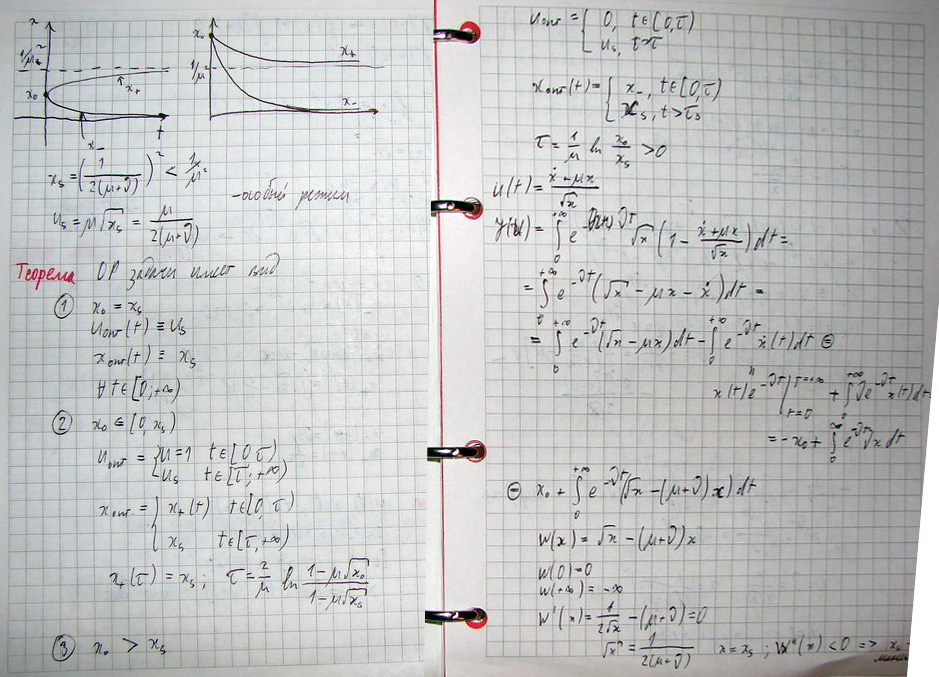 x
1/μ²
x₀
x₊
x₋
t
x₀
1/μ
x₊
x₋
x_s = (1/(2(μ+ϑ)))² < 1/μ²
- особый режим
u_s = μ√x_s = μ/(2(μ+ϑ))
Теорема ОР задачи имеет вид
① x₀ = x_s
u_опт(t) ≡ u_s
x_опт(t) ≡ x_s
∀ t∈[0;+∞)
② x₀ ∈ [0, x_s)
u_опт = { u=1 t∈[0, τ)
u_s t∈[τ;+∞)
x_опт = { x₊(t) t∈[0, τ)
x_s t∈[τ,+∞)
x₊(τ) = x_s; τ = 2/μ ln (1-μ√x₀)/(1-μ√x_s)
③ x₀ > x_s
u_опт = { 0, t∈[0,τ)
u_s, t>τ
x_опт(t) = { x₋, t∈[0,τ)
x_s, t>τ
τ = 1/μ ln x₀/x_s > 0
u(t) = (ẋ+μx)/√x
= ∫₀^{+∞} e^{-ϑt} (√x - μx - ẋ) dt =
= ∫₀^{+∞} e^{-ϑt} (√x - μx) dt - ∫₀^{+∞} e^{-ϑt} ẋ(t) dt ⊜
x(t) e^{-ϑt} |_{t=0}^{t=+∞} + ∫₀^{+∞} ϑe^{-ϑt} x(t) dt
= -x₀ + ∫₀^{∞} e^{-ϑt} ϑx dt
⊜ x₀ + ∫₀^{+∞} e^{-ϑt} (√x - (μ+ϑ)x) dt
W(x) = √x - (μ+ϑ)x
W(0) = 0
W(+∞) = -∞
W'(x) = 1/(2√x) - (μ+ϑ) = 0
√x = 1/(2(μ+ϑ)) x = x_s; W''(x) < 0 => x_s -